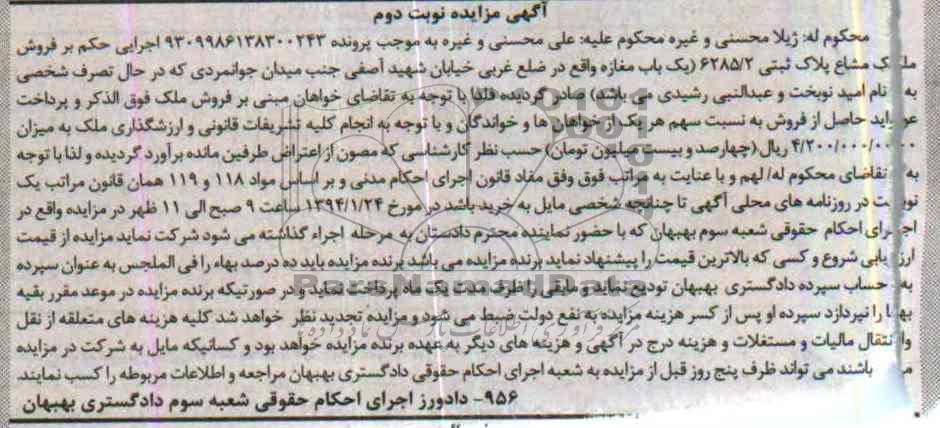 آگهی مزایده نوبت دوم
محکوم له: ژیلا محسنی و غیره محکوم علیه: علی محسنی و غیره به موجب پرونده ۹۳۰۹۹۸۶۱۳۸۳۰۰۲۴۳ اجرایی حکم بر فروش
ملک مشاع پلاک ثبتی ۶۲۸۵/۲ (یک باب مغازه واقع در ضلع غربی خیابان شهید آصفی جنب میدان جوانمردی که در حال تصرف شخصی
به نام امید نوبخت و عبدالنبی رشیدی می باشد) صادر گردیده فلذا با توجه به تقاضای خواهان مبنی بر فروش ملک فوق الذکر و پرداخت
عواید حاصل از فروش به نسبت سهم هر یک از خواهان ها و خواندگان و با توجه به انجام کلیه تشریفات قانونی و ارزشگذاری ملک به میزان
۴/۲۰۰/۰۰۰/۰۰۰ ریال (چهارصد و بیست میلیون تومان) حسب نظر کارشناسی که مصون از اعتراض طرفین مانده برآورد گردیده و لذا با توجه
به تقاضای محکوم له/ لهم و با عنایت به مراتب فوق وفق مفاد قانون اجرای احکام مدنی و بر اساس مواد ۱۱۸ و ۱۱۹ همان قانون مراتب یک
نوبت در روزنامه های محلی آگهی تا چنانچه شخصی مایل به خرید باشد در مورخ ۱۳۹۴/۱/۲۴ ساعت ۹ صبح الی ۱۱ ظهر در مزایده واقع در
اجرای احکام حقوقی شعبه سوم بهبهان که با حضور نماینده محترم دادستان به مرحله اجراء گذاشته می شود شرکت نماید مزایده از قیمت
ارزیابی شروع و کسی که بالاترین قیمت را پیشنهاد نماید برنده مزایده می باشد برنده مزایده باید ده درصد بهاء را فی المجلس به عنوان سپرده
به حساب سپرده دادگستری بهبهان تودیع نماید و مابقی را ظرف مدت یک ماه پرداخت نماید و در صورتیکه برنده مزایده در موعد مقرر بقیه
بها را نپردازد سپرده او پس از کسر هزینه مزایده به نفع دولت ضبط می شود و مزایده تجدید نظر خواهد شد کلیه هزینه های متعلقه از نقل
و انتقال مالیات و مستغلات و هزینه درج در آگهی و هزینه های دیگر به عهده برنده مزایده خواهد بود و کسانیکه مایل به شرکت در مزایده
باشند می تواند ظرف پنج روز قبل از مزایده به شعبه اجرای احکام حقوقی دادگستری بهبهان مراجعه و اطلاعات مربوطه را کسب نمایند.
۹۵۶- دادورز اجرای احکام حقوقی شعبه سوم دادگستری بهبهان